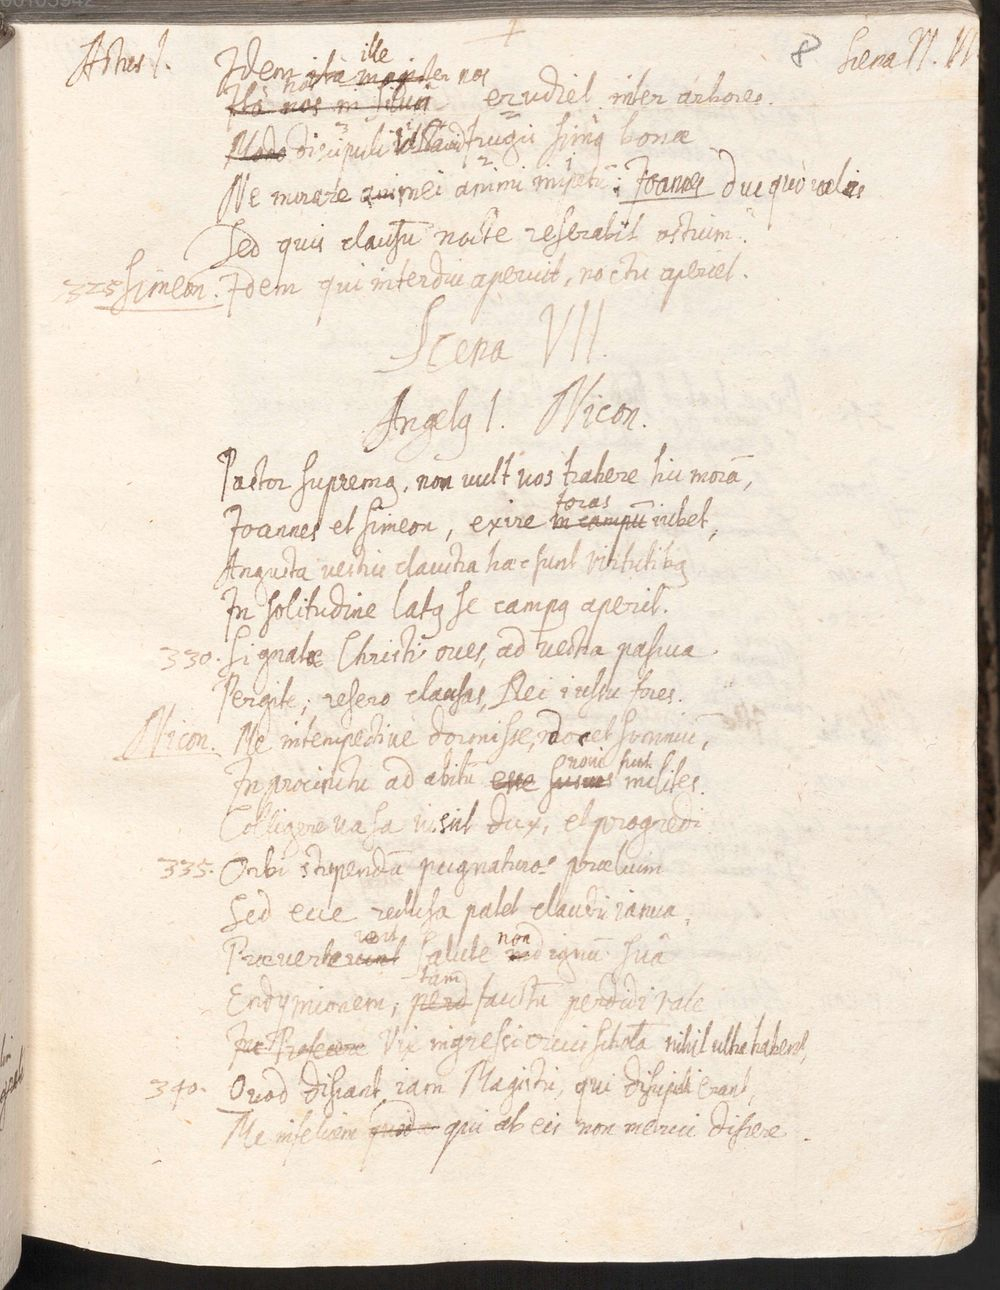 Actus I. 8 Scena VI. VII
Idem ita ille magister nos
Ità nos in silvâ nos erudiet inter arbores.
Modo discipuli frugis simus bonæ
Ne mirare mei animi impetû: Joannes duc quò velis
Sed quis clausû nocte reserabit ostium.
325 Simeon. Idem qui interdiu aperuit, noctu aperiet.
Scena VII.
Angelus I. Nicon.
Pastor supremus, non vult vos trahere hic morã,
Joannes et Simeon, exire in campũ foras iubet,
Angusta vestris claustra hæc sunt virtutibus
In solitudine latus se campus aperit.
330. Signatæ Christi oves, ad vestra pascua
Pergite, resero clausas, Rei iussu fores.
Nicon. Ne intempestive dormisse, docet somniũ,
In procinctu ad abitũ esse novi sunt milites.
Colligere vasa iussit dux, et progredi
335. Orbi stupendũ pugnaturos prœlium
Sed ecce reclusa patet claustri ianua,
Præverterunt salute non indignũ suâ
Endymionem, tam faustũ perdidi rate
Vix ingressi crucis scholã nihil ultra habent,
340. Quod discant iam Magistri, qui discipuli erant,
Me infelicem qui ab eis non merui discere.